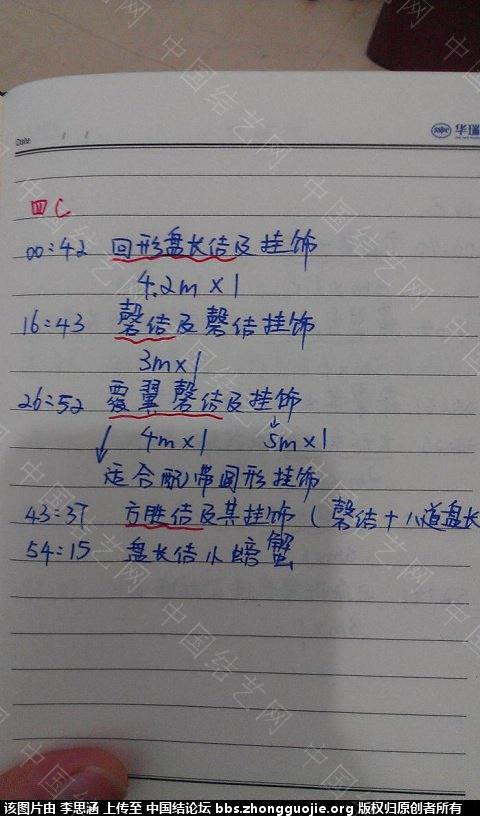 Date
四C
00:42 回形盘长结及挂饰
4.2m×1
16:43 磬结及磬结挂饰
3m×1
26:52 覆翼磬结及挂饰
4m×1 5m×1
适合配带圆形挂饰
43:37 方胜结及其挂饰(磬结+八道盘长
54:15 盘长结小螃蟹
中国结艺网
该图片由 李思涵 上传至 中国结论坛 bbs.zhongguojie.org 版权归原创者所有